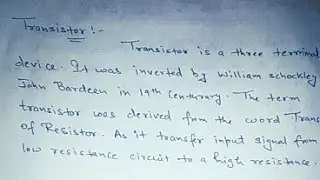 Transistor :-
Transistor is a three terminal
device. It was inverted by William schockley
John Bardeen in 19th centurary. The term
transistor was derived from the word Trans
of Resistor. As it transfer input signal from
low resistance circuit to a high resistance.